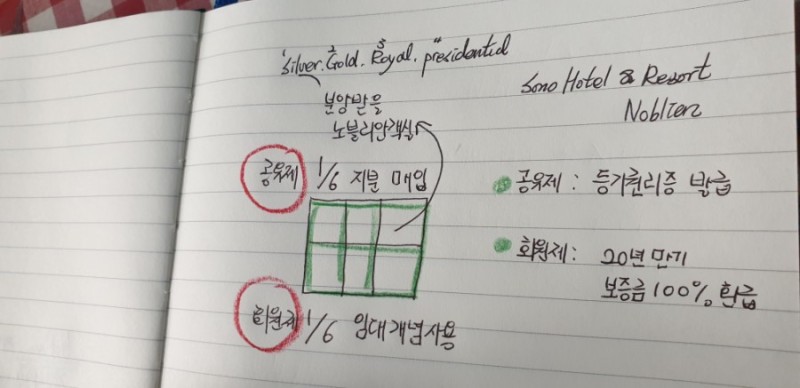 1 2 3 4
Silver. Gold. Royal. presidential
분양받을
노블리안객실
공유제 1/6 지분 매입
회원제 1/6 임대개념사용
Sono Hotel & Resort
Noblien
공유제 : 등기권리증 발급
회원제 : 20년 만기
보증금 100% 환급